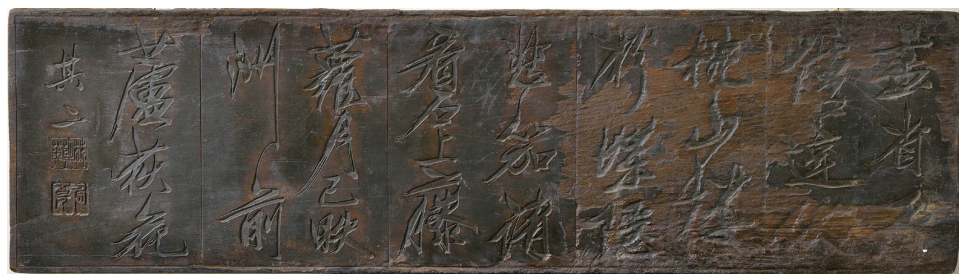 畫省
爐違
枕山樓
粉堞隱
悲笳請
看石上藤
蘿月已映
洲前
蘆荻花
其二